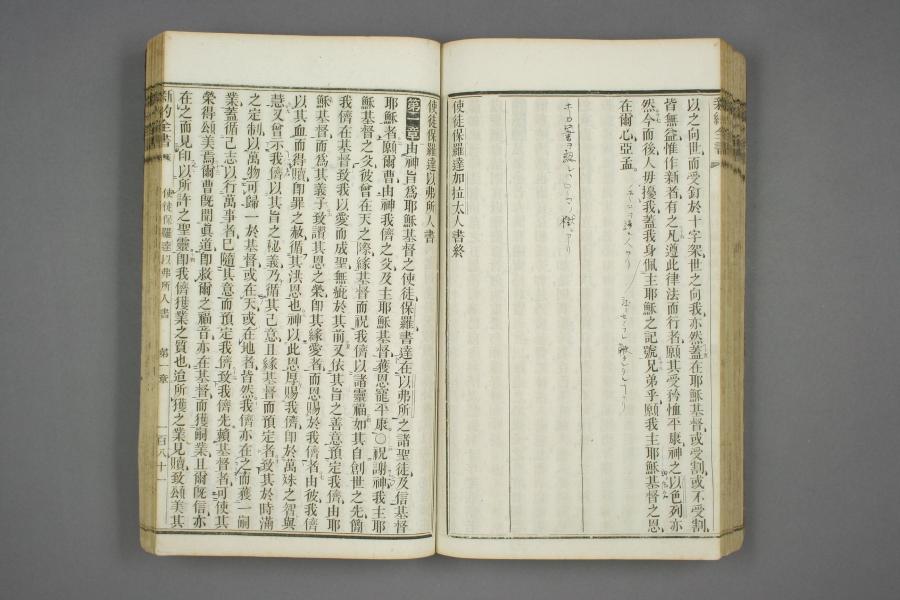 新約全書
以之向世而受釘於十字架世之向我亦然蓋在耶穌基督或受割或不受割
皆無益惟作新者有之凡遵此律法而行者願其受矜恤平康神之以色列亦
然今而後人毋擾我蓋我身佩主耶穌之記號兄弟乎願我主耶穌基督之恩
在爾心亞孟
使徒保羅達加拉太人書終
使徒保羅達以弗所人書
第一章由神旨為耶穌基督之使徒保羅書達在以弗所之諸聖徒及信基督
耶穌者願爾曹由神我儕之父及主耶穌基督獲恩寵平康〇祝謝神我主耶
穌基督之父彼曾在天之際緣基督而祝我儕以諸靈福如其自創世之先簡
我儕在基督致我以愛而成聖無疵於其前又依其旨之善意預定我儕由耶
穌基督而為其義子致讚其恩之榮即其緣愛者而恩賜於我儕者由彼我儕
以其血而得贖即罪之赦循其洪恩也神以此恩厚賜我儕即於萬殊之智與
慧又曾示我儕以其旨之秘義乃循其己意且緣基督而預定者致其於時滿
之定制以萬物可歸一於基督或在天或在地者皆然我儕亦在之而獲一嗣
業蓋循己志以行萬事者已隨其意而預定我儕致我儕先賴基督者可使其
榮得頌美焉爾曹既聞真道即救爾之福音亦在基督而獲嗣業且爾既信亦
在之而見印以所許之聖靈即我儕獲業之質也迨所獲之業見贖致頌美其
新約全書 使徒保羅達以弗所人書 第一章 一百八十一